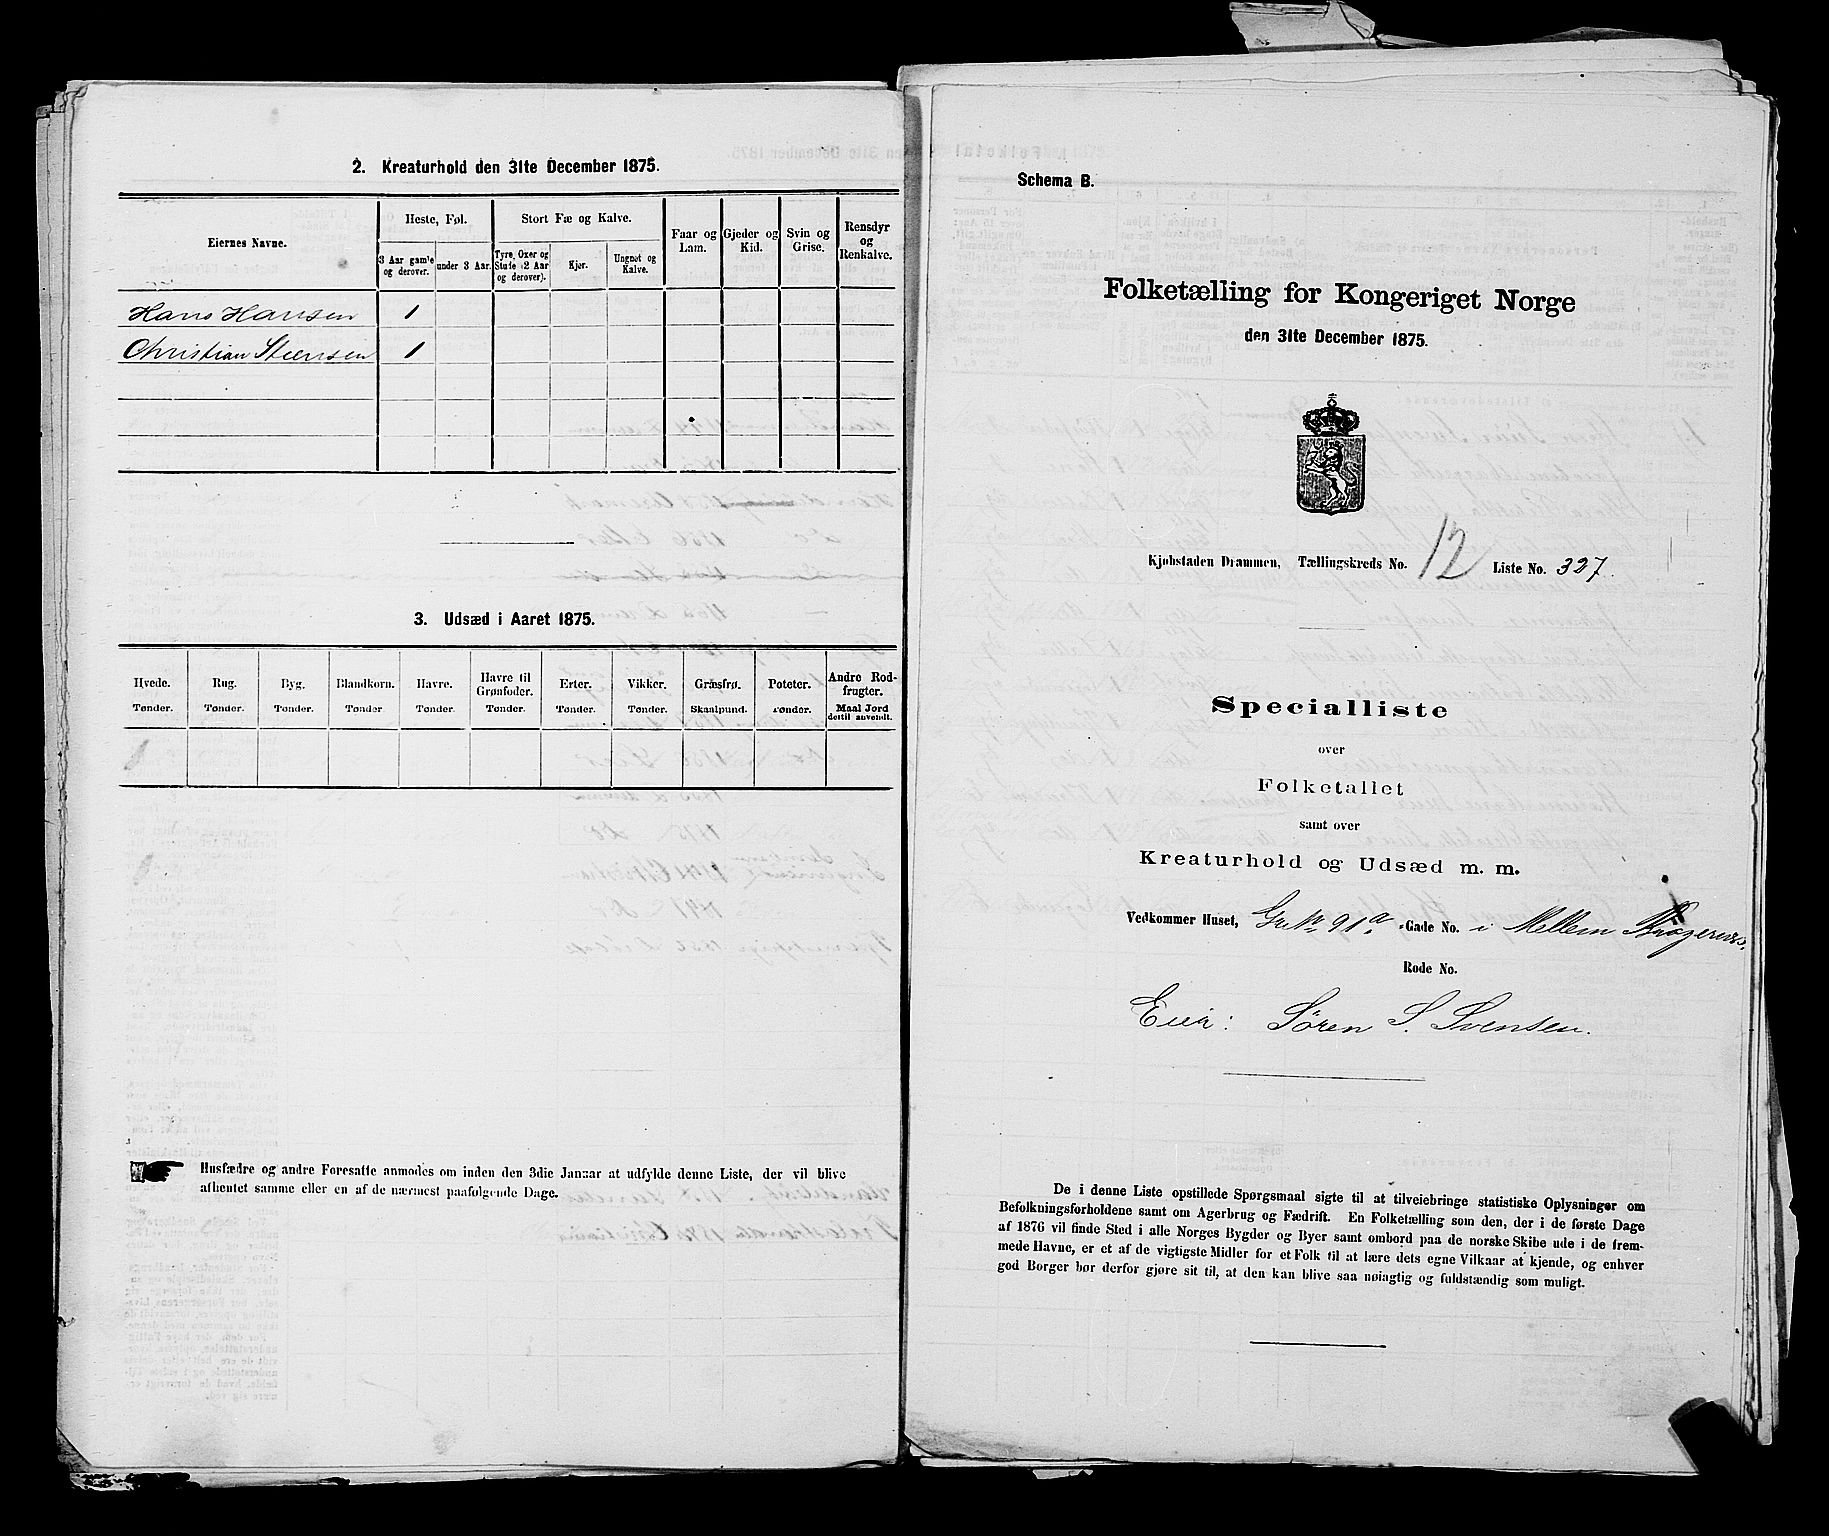 2. Kreaturhold den 31te December 1875.
Eiernes Navne.
Heste, Føl.
Stort Fæ og Kalve.
Faar og Lam.
Gjeder og Kid.
Svin og Grise.
Rensdyr og Renkalve.
3 Aar gamle og derover.
under 3 Aar.
Tyre, Oxer og Stude (2 Aar og derover).
Kjør.
Ungnøt og Kalve.
Hans Hansen 1
Christian Steensen 1
3. Udsæd i Aaret 1875.
Hvede. Rug. Byg. Blandkorn. Havre. Havre til Grønfoder. Erter. Vikker. Græsfrø. Poteter. Andre Rodfrugter.
Tønder. Tønder. Tønder. Tønder. Tønder. Tønder. Tønder. Tønder. Skaalpund. Tønder. Maal Jord dertil anvendt.
Husfædre og andre Foresatte anmodes om inden den 3die Januar at udfylde denne Liste, der vil blive
afhentet samme eller en af de nærmest paafølgende Dage.
Schema B.
Folketælling for Kongeriget Norge
den 31te December 1875.
Kjøbstaden Drammen, Tællingskreds No. 12 Liste No. 327.
Specialliste
over
Folketallet
samt over
Kreaturhold og Udsæd m. m.
Vedkommer Huset, Gr. No. 91a. Gade No. i Mellem
Rode No.
Eier: Sören S. Svensen.
De i denne Liste opstillede Spørgsmaal sigte til at tilveiebringe statistiske Oplysninger om
Befolkningsforholdene samt om Agerbrug og Fædrift. En Folketælling som den, der i de første Dage
af 1876 vil finde Sted i alle Norges Bygder og Byer samt ombord paa de norske Skibe ude i de frem-
mede Havne, er et af de vigtigste Midler for et Folk til at lære dets egne Vilkaar at kjende, og enhver
god Borger bør derfor gjøre sit til, at den kan blive saa nøiagtig og fuldstændig som muligt.